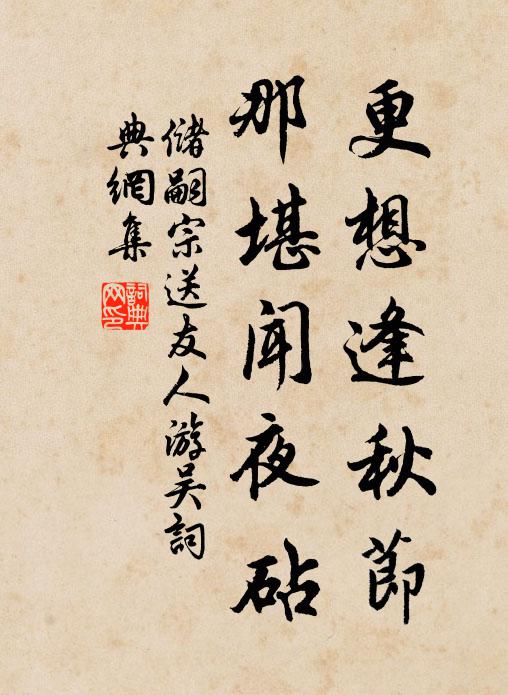 更想逢秋節
那堪聞夜砧
儲嗣宗送友人游吳詞
典網集
詞典
网印